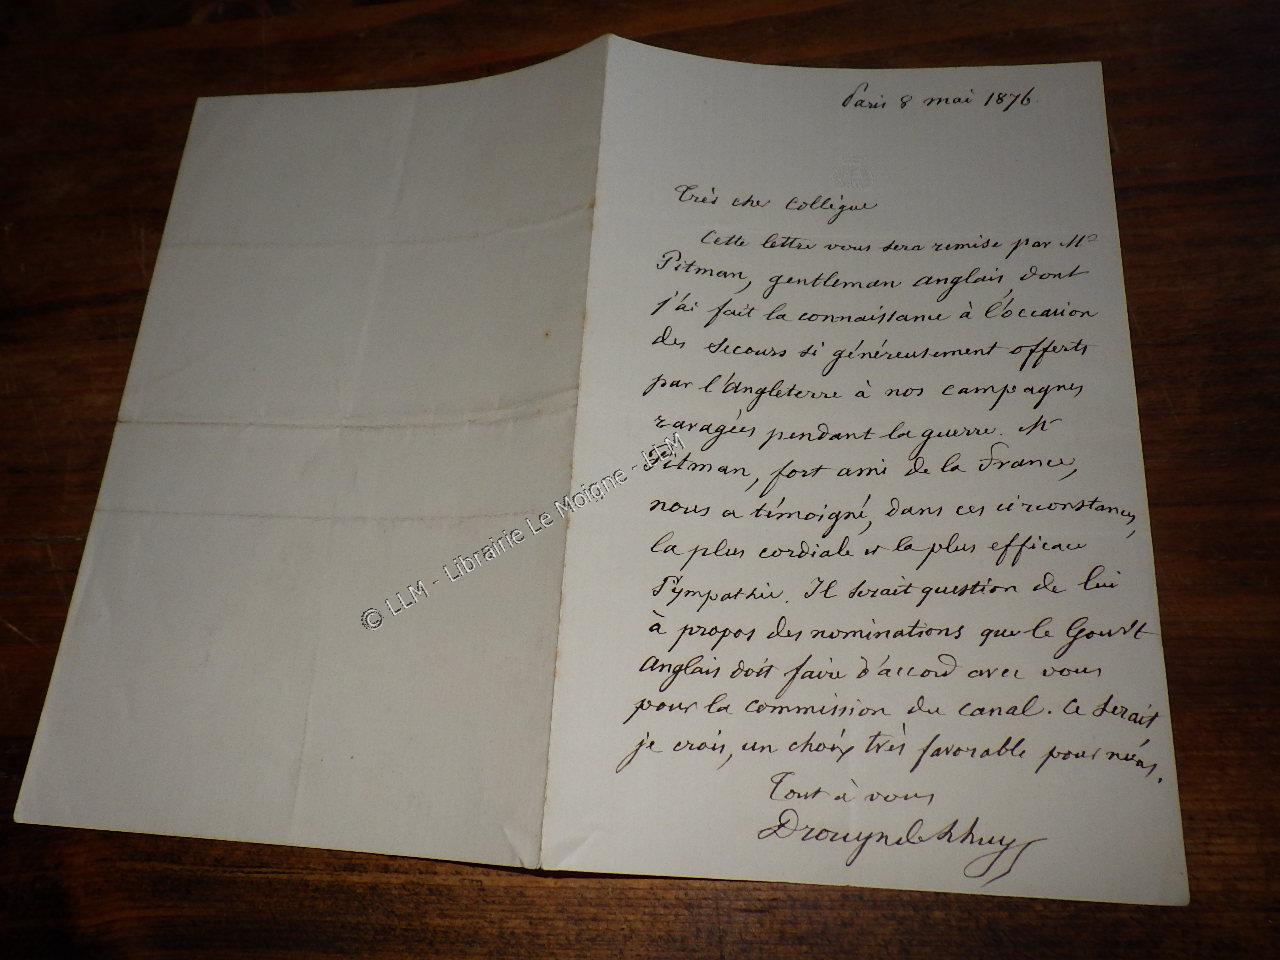 Paris 8 mai 1876.
Très cher Collègue
Cette lettre vous sera remise par Mr
Pitman, gentleman anglais, dont
j'ai fait la connaissance à l'occasion
des secours si généreusement offerts
par l'Angleterre à nos campagnes
ravagées pendant la guerre. Mr
Pitman, fort ami de la France,
nous a témoigné, dans ces circonstances,
la plus cordiale et la plus efficace
Sympathie. Il serait question de lui
à propos des nominations que le Gouvt
Anglais doit faire d'accord avec vous
pour la commission du canal. Ce serait
je crois, un choix très favorable pour nous.
Tout à vous
Drouyn de Lhuys
© LLM - Librairie Le Moigne - LLM